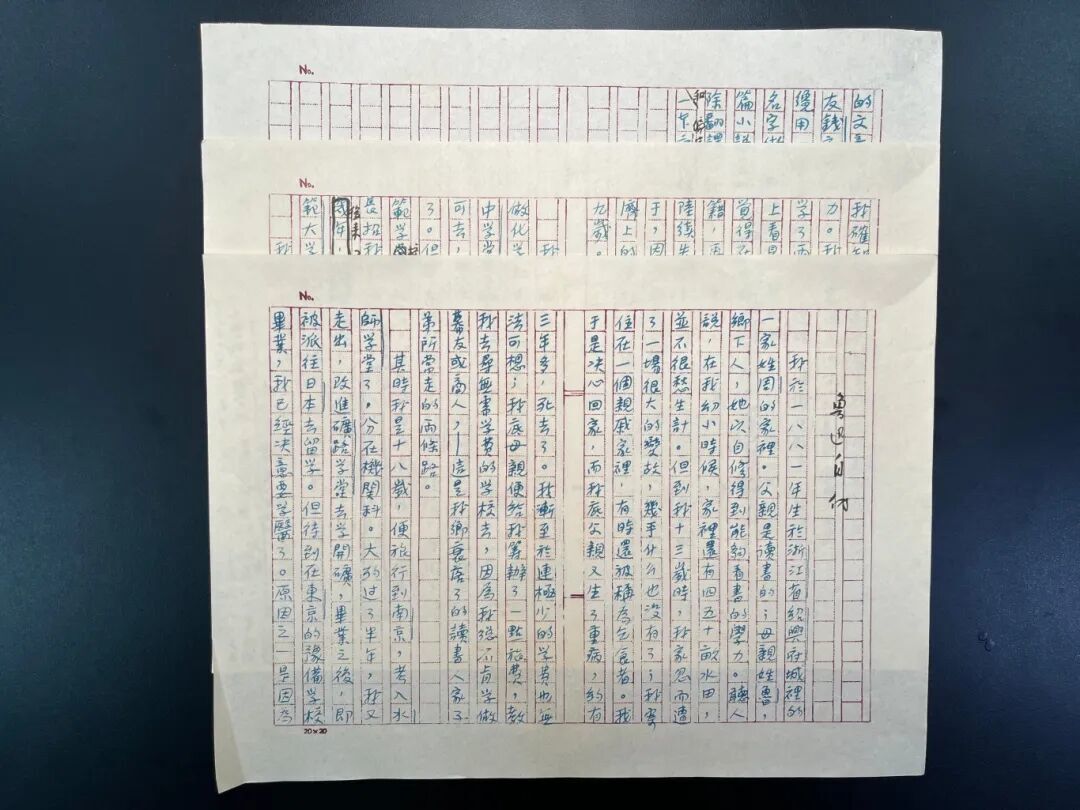 No.
的文
友錢
纔用
名字
篇小
除翻譯
一
No.
我確
力。我
学了兩
上看
首得在
籍，再
陸續
于，因
濟上的
九歲。
我
做化学
中学堂
可去，
了。但
範学
長招我
年，
範大学
我
No.
魯迅自传
我於一八八一年生於浙江省紹興府城裡的
一家姓周的家裡。父親是讀書的；母親姓魯，
鄉下人，她以自修得到能夠看書的學力。聽人
說，在我幼小時候，家裡還有四五十畝水田，
並不很愁生計。但到我十三歲時，我家忽而遭
了一場很大的變故，幾乎什么也沒有了；我寄
住在一個親戚家裡，有時還被稱為乞食者。我
于是决心回家，而我底父親又生了重病，約有
三年多，死去了。我漸至於連極少的学費也無
法可想；我底母親便給我籌辦了一點旅費，教
我去尋無需学費的学校去，因為我總不肯学做
幕友或商人，—這是我鄉衰落了的讀書人家子
弟所常走的兩條路。
其時我是十八歲，便旅行到南京，考入水
師学堂了，分在機関科。大約过了半年，我又
走出，改進礦路学堂去学開礦，畢業之後，即
被派往日本去留学。但待到在東京的豫備学校
畢業，我已經决意要学醫了。原因之一是因為
20×20